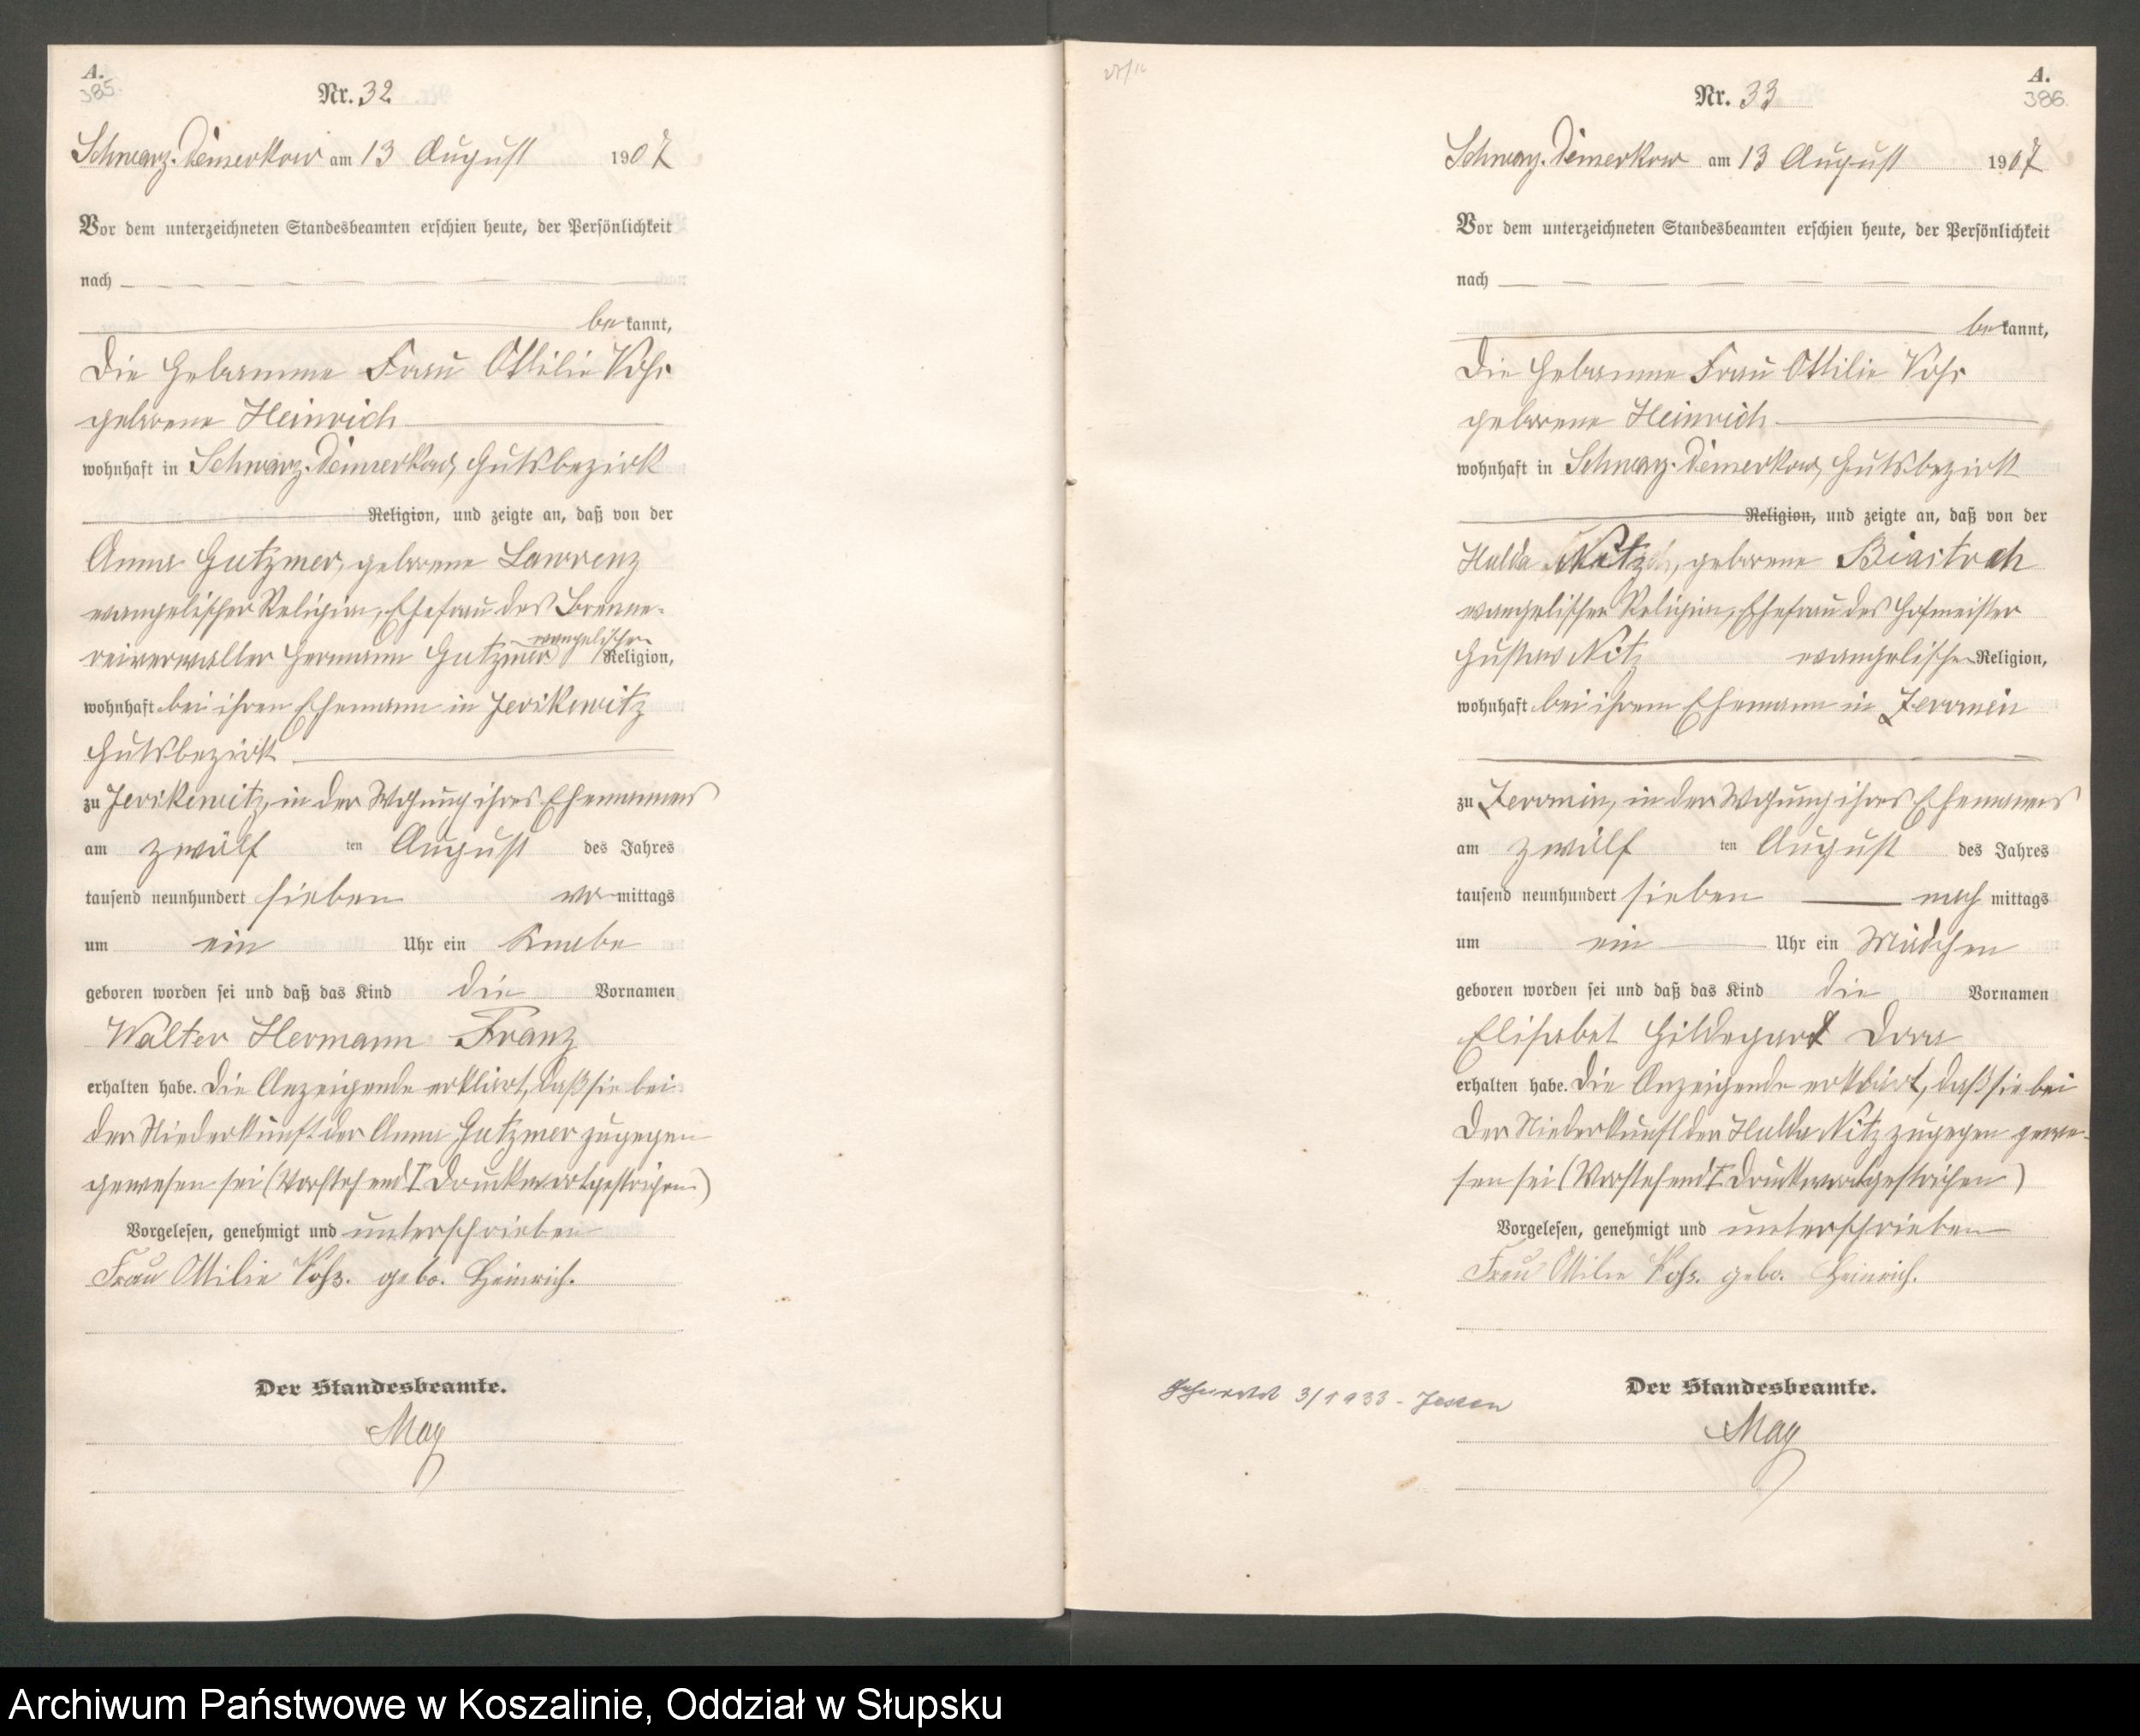 A.
385.
Nr. 32
Schwarz-Damerkow am 13 August 1907
Vor dem unterzeichneten Standesbeamten erschien heute, der Persönlichkeit
nach
be kannt,
die Hebamme Frau Ottilie Voß
geborene Heinrich
wohnhaft in Schwarz-Damerkow, Gutsbezirk
Religion, und zeigte an, daß von der
Anna Gutzmer, geborene Lawrenz
evangelischer Religion, Ehefrau des Brenne-
reiverwalter Hermann Gutzmer evangelischer Religion,
wohnhaft bei ihren Ehemann in Jerskewitz
Gutsbezirk
zu Jerskewitz, in der Wohnung ihres Ehemannes
am zwölf ten August des Jahres
tausend neunhundert sieben vor mittags
um ein Uhr ein Knabe
geboren worden sei und daß das Kind die Vornamen
Walter Hermann Franz
erhalten habe. Die Anzeigende erklärt, daß sie bei
der Niederkunft der Anna Gutzmer zugegen
gewesen sei (Vorstehend 1 Druckwort gestrichen)
Vorgelesen, genehmigt und unterschrieben
Frau Ottilie Voß. gebo. Heinrich.
Der Standesbeamte.
May
A.
386.
Nr. 33
Schwarz-Damerkow am 13 August 1907
Vor dem unterzeichneten Standesbeamten erschien heute, der Persönlichkeit
nach
be kannt,
die Hebamme Frau Ottilie Voß
geborene Heinrich
wohnhaft in Schwarz-Damerkow, Gutsbezirk
Religion, und zeigte an, daß von der
Hulda Nitz, geborene Biastoch
evangelischer Religion, Ehefrau des Hofmeister
Gustav Nitz evangelischer Religion,
wohnhaft bei ihrem Ehemann in Zerrmin
zu Zerrmin, in der Wohnung ihres Ehemannes
am zwölf ten August des Jahres
tausend neunhundert sieben nach mittags
um ein Uhr ein Mädchen
geboren worden sei und daß das Kind die Vornamen
Elisabet Hildegard Dora
erhalten habe. Die Anzeigende erklärt, daß sie bei
der Niederkunft der Hulda Nitz zugegen gewe-
sen sei (Vorstehend 1 Druckwort gestrichen)
Vorgelesen, genehmigt und unterschrieben
Frau Ottilie Voß. gebo. Heinrich.
3/1933 - Jessen
Der Standesbeamte.
May
Archiwum Państwowe w Koszalinie, Oddział w Słupsku